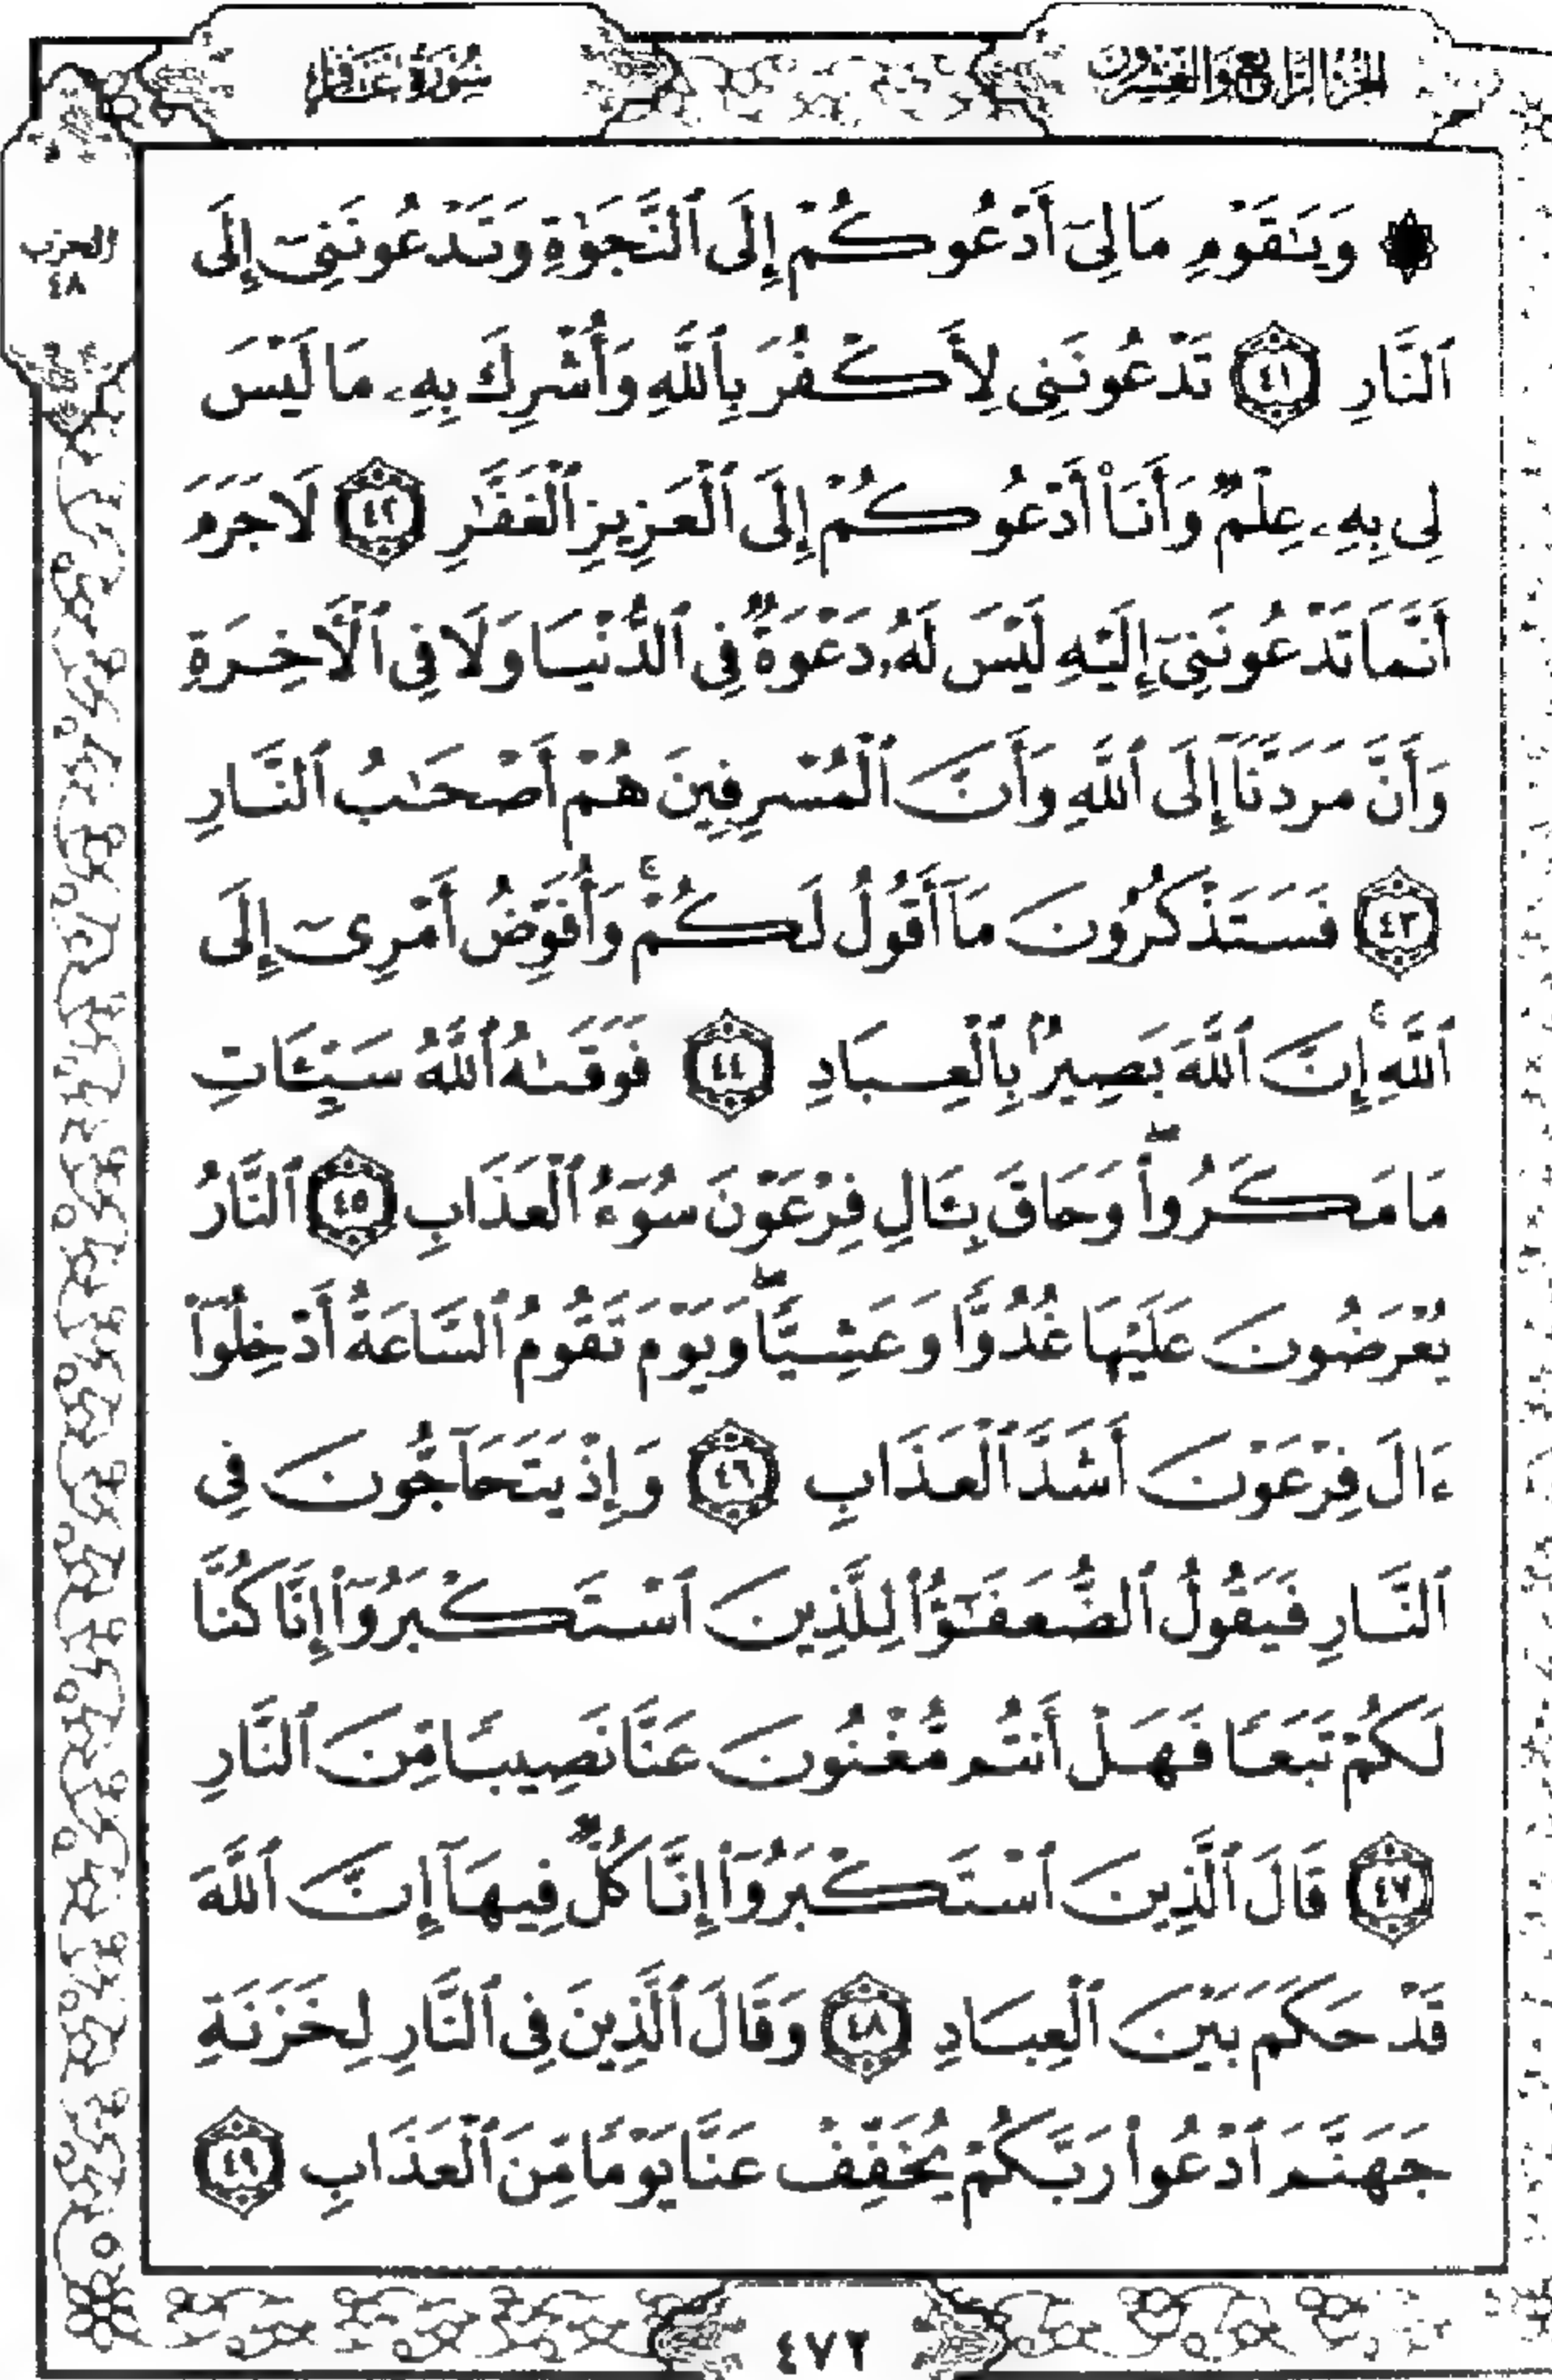 الجزء الرابع والعشرون
سورة غافر
الحزب
٤٨
۞ وَيَـٰقَوْمِ مَا لِىٓ أَدْعُوكُمْ إِلَى ٱلنَّجَوٰةِ وَتَدْعُونَنِىٓ إِلَى
ٱلنَّارِ ٤١ تَدْعُونَنِى لِأَكْفُرَ بِٱللَّهِ وَأُشْرِكَ بِهِۦ مَا لَيْسَ
لِى بِهِۦ عِلْمٌ وَأَنَا۠ أَدْعُوكُمْ إِلَى ٱلْعَزِيزِ ٱلْغَفَّـٰرِ ٤٢ لَا جَرَمَ
أَنَّمَا تَدْعُونَنِىٓ إِلَيْهِ لَيْسَ لَهُۥ دَعْوَةٌ فِى ٱلدُّنْيَا وَلَا فِى ٱلْـَٔاخِرَةِ
وَأَنَّ مَرَدَّنَآ إِلَى ٱللَّهِ وَأَنَّ ٱلْمُسْرِفِينَ هُمْ أَصْحَـٰبُ ٱلنَّارِ
٤٣ فَسَتَذْكُرُونَ مَآ أَقُولُ لَكُمْ ۚ وَأُفَوِّضُ أَمْرِىٓ إِلَى
ٱللَّهِ ۚ إِنَّ ٱللَّهَ بَصِيرٌۢ بِٱلْعِبَادِ ٤٤ فَوَقَىٰهُ ٱللَّهُ سَيِّـَٔاتِ
مَا مَكَرُوا۟ ۖ وَحَاقَ بِـَٔالِ فِرْعَوْنَ سُوٓءُ ٱلْعَذَابِ ٤٥ ٱلنَّارُ
يُعْرَضُونَ عَلَيْهَا غُدُوًّا وَعَشِيًّا ۖ وَيَوْمَ تَقُومُ ٱلسَّاعَةُ أَدْخِلُوٓا۟
ءَالَ فِرْعَوْنَ أَشَدَّ ٱلْعَذَابِ ٤٦ وَإِذْ يَتَحَآجُّونَ فِى
ٱلنَّارِ فَيَقُولُ ٱلضُّعَفَـٰٓؤُا۟ لِلَّذِينَ ٱسْتَكْبَرُوٓا۟ إِنَّا كُنَّا
لَكُمْ تَبَعًا فَهَلْ أَنتُم مُّغْنُونَ عَنَّا نَصِيبًا مِّنَ ٱلنَّارِ
٤٧ قَالَ ٱلَّذِينَ ٱسْتَكْبَرُوٓا۟ إِنَّا كُلٌّ فِيهَآ إِنَّ ٱللَّهَ
قَدْ حَكَمَ بَيْنَ ٱلْعِبَادِ ٤٨ وَقَالَ ٱلَّذِينَ فِى ٱلنَّارِ لِخَزَنَةِ
جَهَنَّمَ ٱدْعُوا۟ رَبَّكُمْ يُخَفِّفْ عَنَّا يَوْمًا مِّنَ ٱلْعَذَابِ ٤٩
٤٧٢